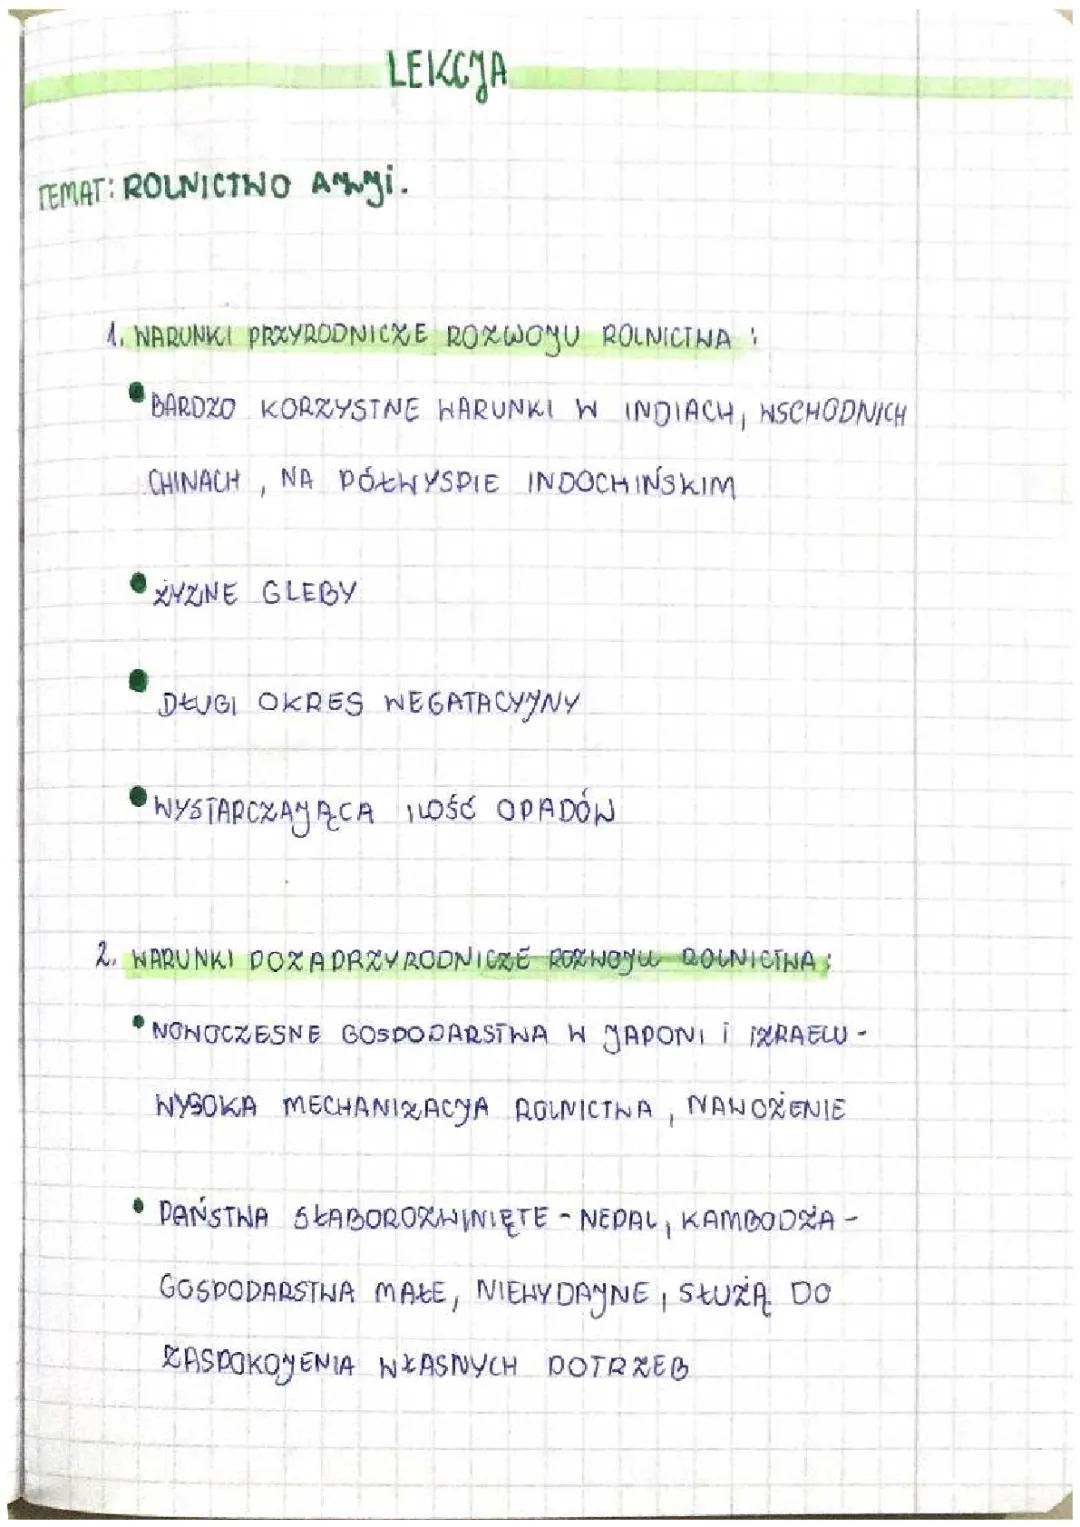 LEKCJA
TEMAT: ROLNICTWO Azji.
1. WARUNKI PRZYRODNICZE ROZWOJU ROLNICTWA :
• BARDZO KORZYSTNE WARUNKI W INDIACH, WSCHODNICH
CHINACH, NA PÓŁWYSPIE INDOCHIŃSKIM
• ŻYZNE GLEBY
• DŁUGI OKRES WEGATACYJNY
• WYSTARCZAJĄCA ILOŚĆ OPADÓW
2. WARUNKI POZAPRZYRODNICZE ROZWOJU ROLNICTWA :
• NOWOCZESNE GOSPODARSTWA W JAPONI i IZRAELU -
WYSOKA MECHANIZACJA ROLNICTWA, NAWOŻENIE
• PAŃSTWA SŁABOROZWINIĘTE - NEPAL, KAMBODŻA -
GOSPODARSTWA MAŁE, NIEWYDAJNE, SŁUŻĄ DO
ZASPOKOJENIA WŁASNYCH POTRZEB